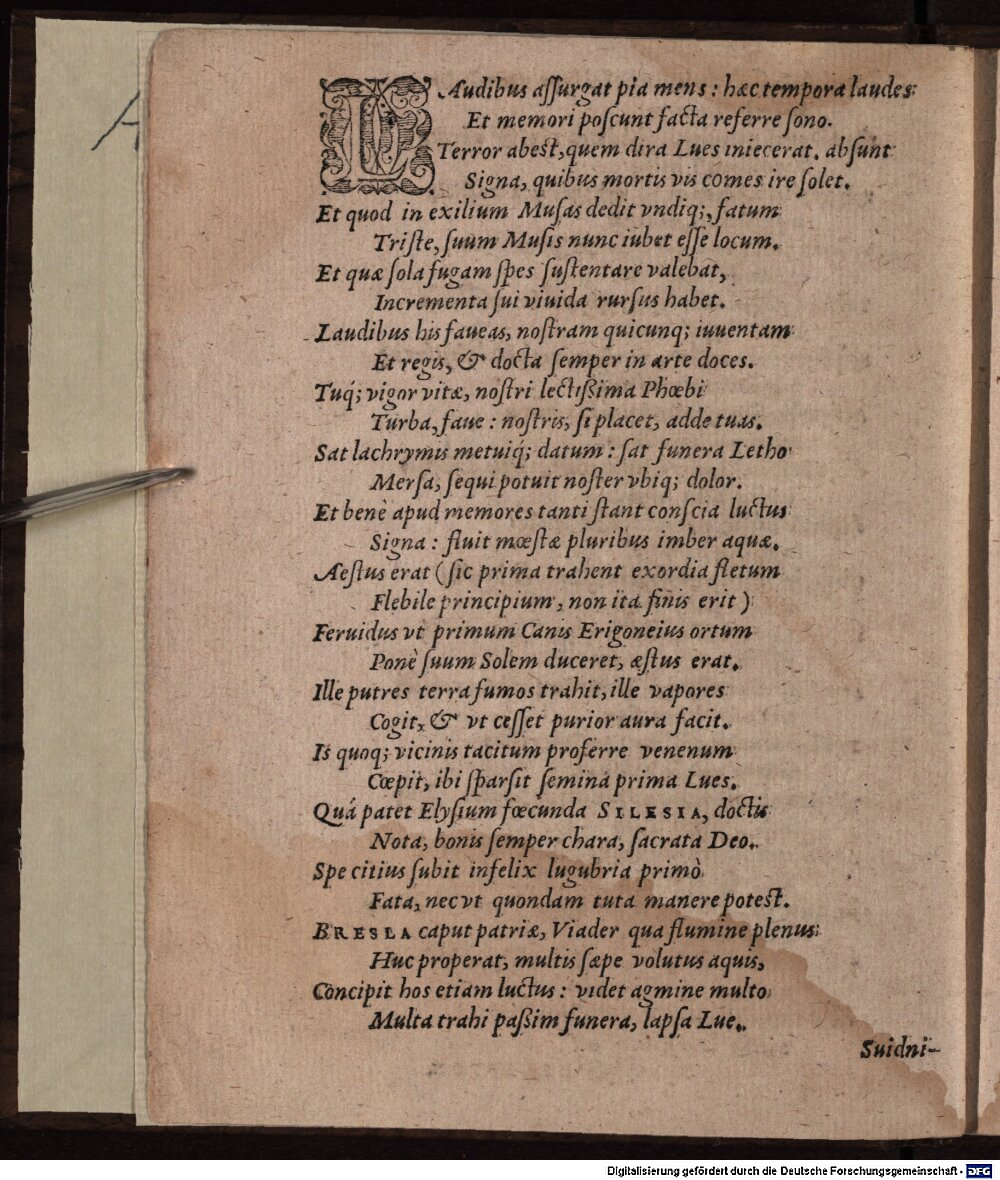 LAudibus aſſurgat pia mens: hæc tempora laudes
Et memori poſcunt facta referre ſono.
Terror abest, quem dira Lues iniecerat. abſunt
Signa, quibus mortis vis comes ire ſolet.
Et quod in exilium Muſas dedit vndiq;, fatum
Triſte, ſuum Muſis nunc iubet eſſe locum.
Et quæ ſola fugam ſpes ſuſtentare valebat,
Incrementa ſui viuida rurſus habet.
Laudibus his faueas, noſtram quicunq; iuuentam
Et regis, & docta ſemper in arte doces.
Tuq́; vigor vitæ, noſtri lectiſsima Phœbi
Turba, faue: noſtris, ſi placet, adde tuas.
Sat lachrymis metuiq́; datum: ſat funera Letho
Merſa, ſequi potuit noſter vbiq; dolor.
Et benè apud memores tanti ſtant conſcia luctus
Signa: fluit mœſtæ pluribus imber aquæ.
Aeſtus erat (ſic prima trahent exordia fletum
Flebile principium, non ita finis erit)
Feruidus vt primum Canis Erigoneius ortum
Ponè ſuum Solem duceret, æſtus erat.
Ille putres terra fumos trahit, ille vapores
Cogit, & vt ceſſet purior aura facit.
Is quoq; vicinis tacitum proferre venenum
Cœpit, ibi ſparſit ſemina prima Lues.
Quá patet Elyſium fœcunda SILESIA, doctis
Nota, bonis ſemper chara, ſacrata Deo.
Spe citius ſubit infelix lugubria primò
Fata, nec vt quondam tuta manere potest.
BRESLA caput patriæ, Viader qua flumine plenus
Huc properat, multis ſæpe volutus aquis,
Concipit hos etiam luctus: videt agmine multo
Multa trahi paſsim funera, lapſa Lue.
Suidni-
Digitalisierung gefördert durch die Deutsche Forschungsgemeinschaft - DFG